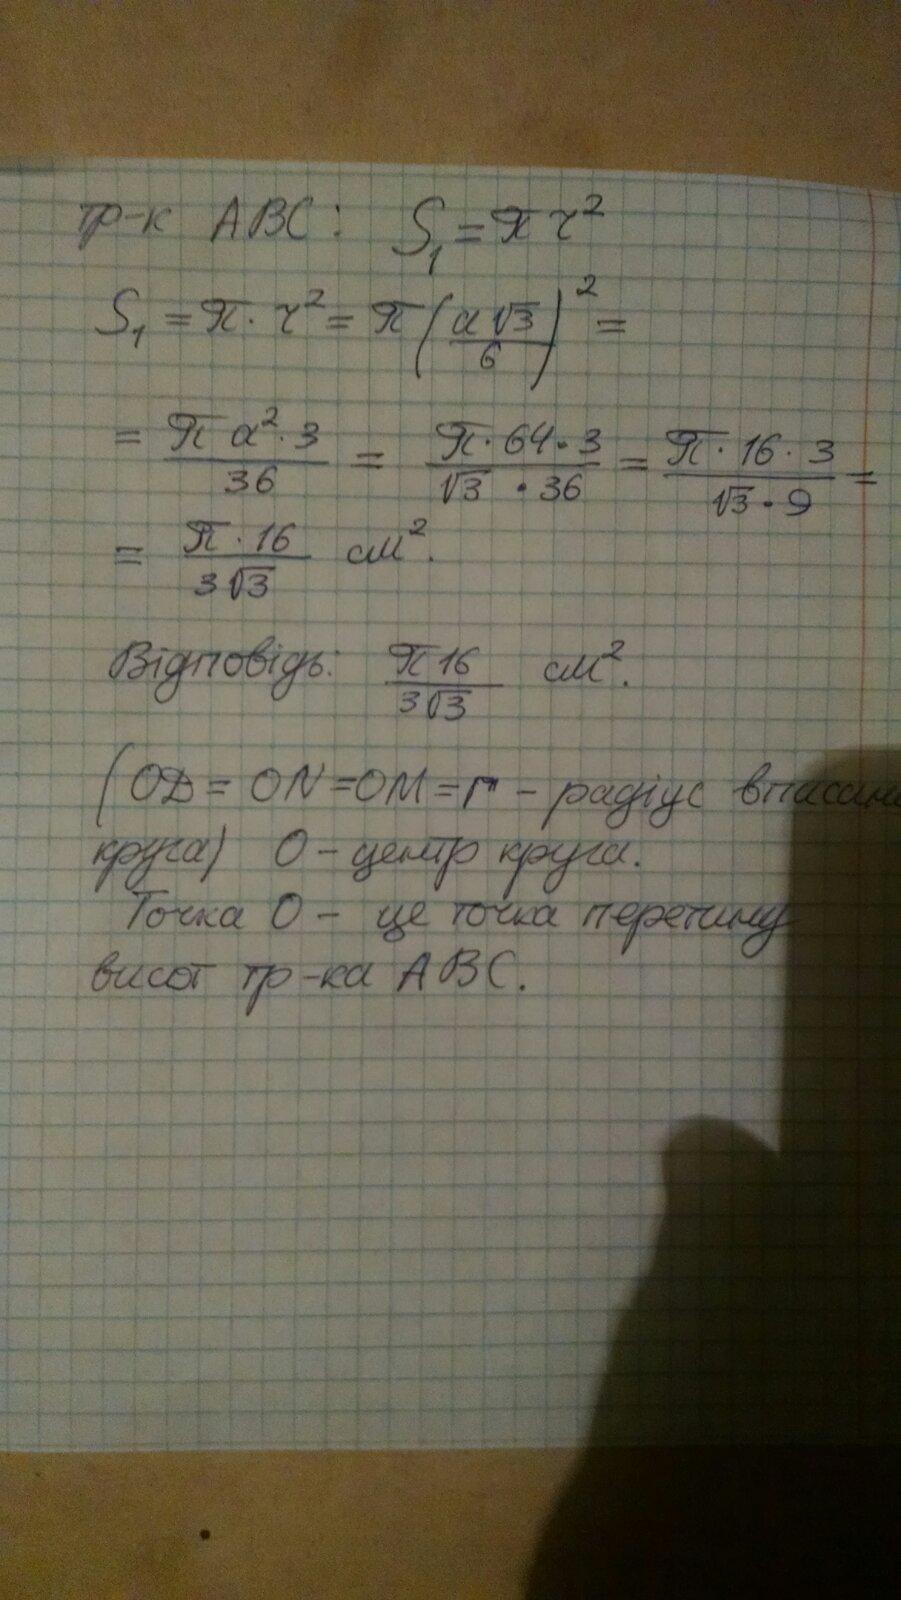 тр-к ABC: S₁ = π r²
S₁ = π · r² = π (a√3/6)² =
= π a² · 3/36 = π · 64 · 3/√3 · 36 = π · 16 · 3/√3 · 9 =
= π · 16/3√3 см².
Відповідь: π16/3√3 см².
(OD = ON = OM = r – радіус
круга) O – центр круга.
Точка O – це точка перетину
висот тр-ка ABC.